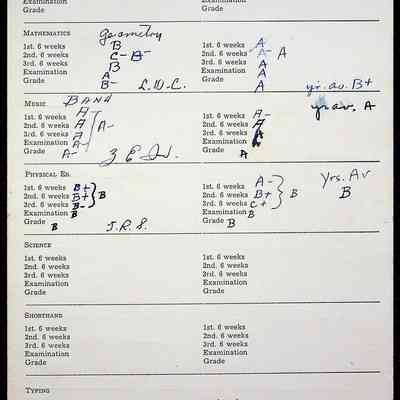 Examination
Grade
MATHEMATICS Geometry
1st. 6 weeks B 1st. 6 weeks A
2nd. 6 weeks C- B- 2nd. 6 weeks A- A
3rd. 6 weeks B 3rd. 6 weeks A
Examination A Examination A
Grade B- L.W.C. Grade A yr. av. B+
MUSIC BAND yr av. A
1st. 6 weeks A 1st. 6 weeks A-
2nd. 6 weeks A A- 2nd. 6 weeks A
3rd. 6 weeks A 3rd. 6 weeks A
Examination A- Examination
Grade A- Grade A
PHYSICAL ED. Yrs. Av
1st. 6 weeks B+ 1st. 6 weeks A- B
2nd. 6 weeks B+ B 2nd. 6 weeks B+ B
3rd. 6 weeks B- 3rd. 6 weeks C+
Examination B Examination B
Grade B J.R.S. Grade B
SCIENCE
1st. 6 weeks 1st. 6 weeks
2nd. 6 weeks 2nd. 6 weeks
3rd. 6 weeks 3rd. 6 weeks
Examination Examination
Grade Grade
SHORTHAND
1st. 6 weeks 1st. 6 weeks
2nd. 6 weeks 2nd. 6 weeks
3rd. 6 weeks 3rd. 6 weeks
Examination Examination
Grade Grade
TYPING